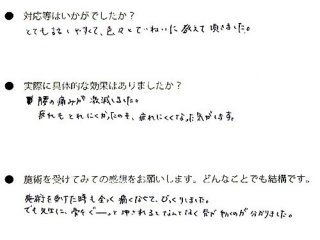 ● 対応等はいかがでしたか？
とても話しやすくて、色々とていねいに教えて頂きました。
● 実際に具体的な効果はありましたか？
腰の痛みが激減しました。
疲れもとれにくかったのも、疲れにくくなった気がします。
● 施術を受けてみての感想をお願いします。どんなことでも結構です。
施術を受けた時も全く痛くなくて、びっくりしました。
でも先生に、骨をぐーっと押されるとなんとなく骨が動くのが分かりました。